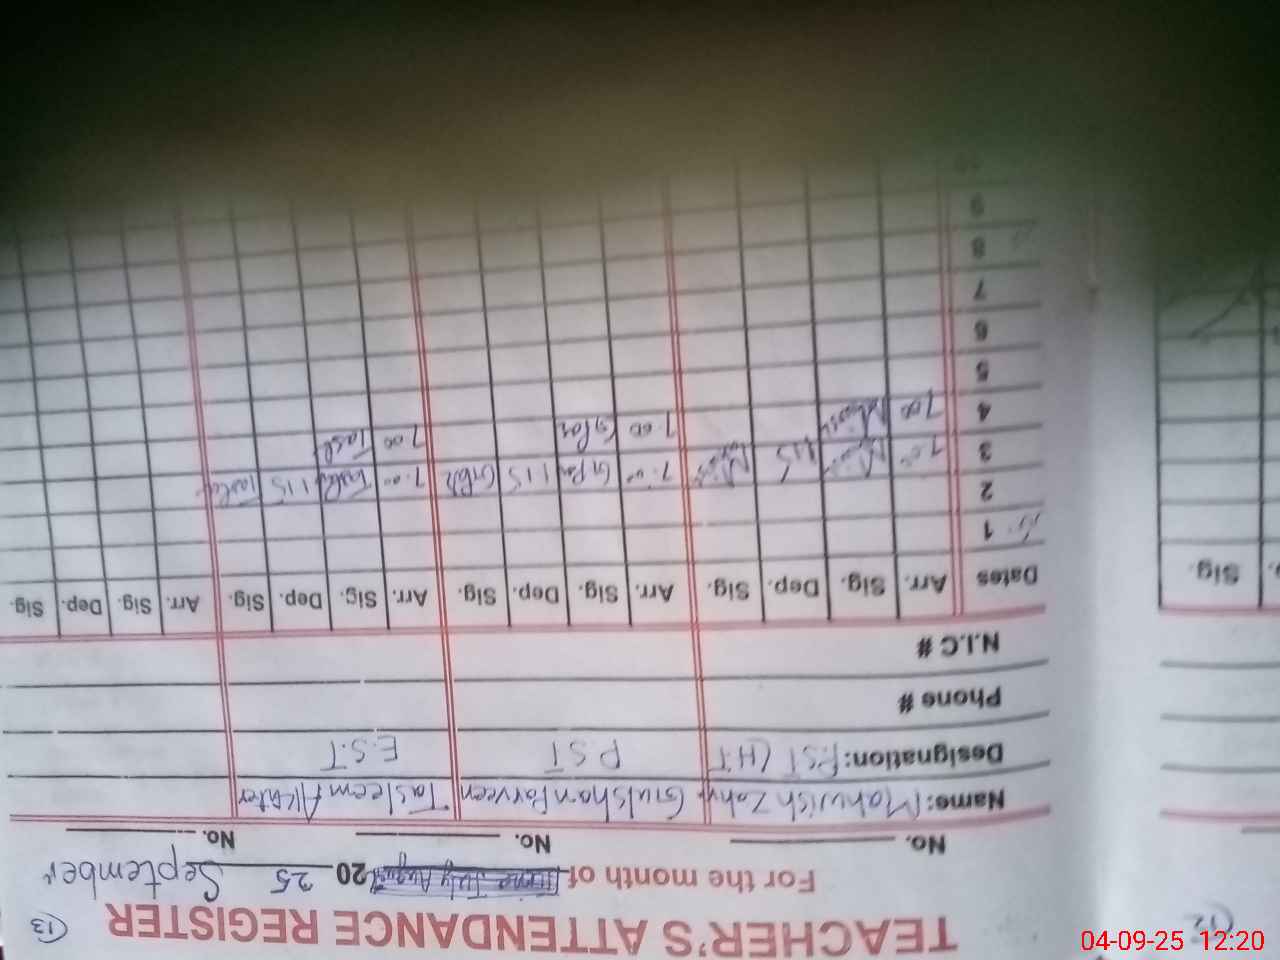 (13
TEACHER'S ATTENDANCE REGISTER
For the month of June July August 2025 September
No. No. No.
Name: Mahwish Zahr Gulshan Parveen Tasleem Akhter
Designation: P.ST (HT P.ST E.S.T
Phone #
N.I.C #
Dates Arr. Sig. Dep. Sig. Arr. Sig. Dep. Sig. Arr. Sig. Dep. Sig. Arr. Sig. Dep. Sig.
1
2
3 7.00 1 15 7.00 1 15 7.00 1 15
4 7 00 7.00 7 00
5
6
7
8
9
(12
Sig.
04-09-25 12:20